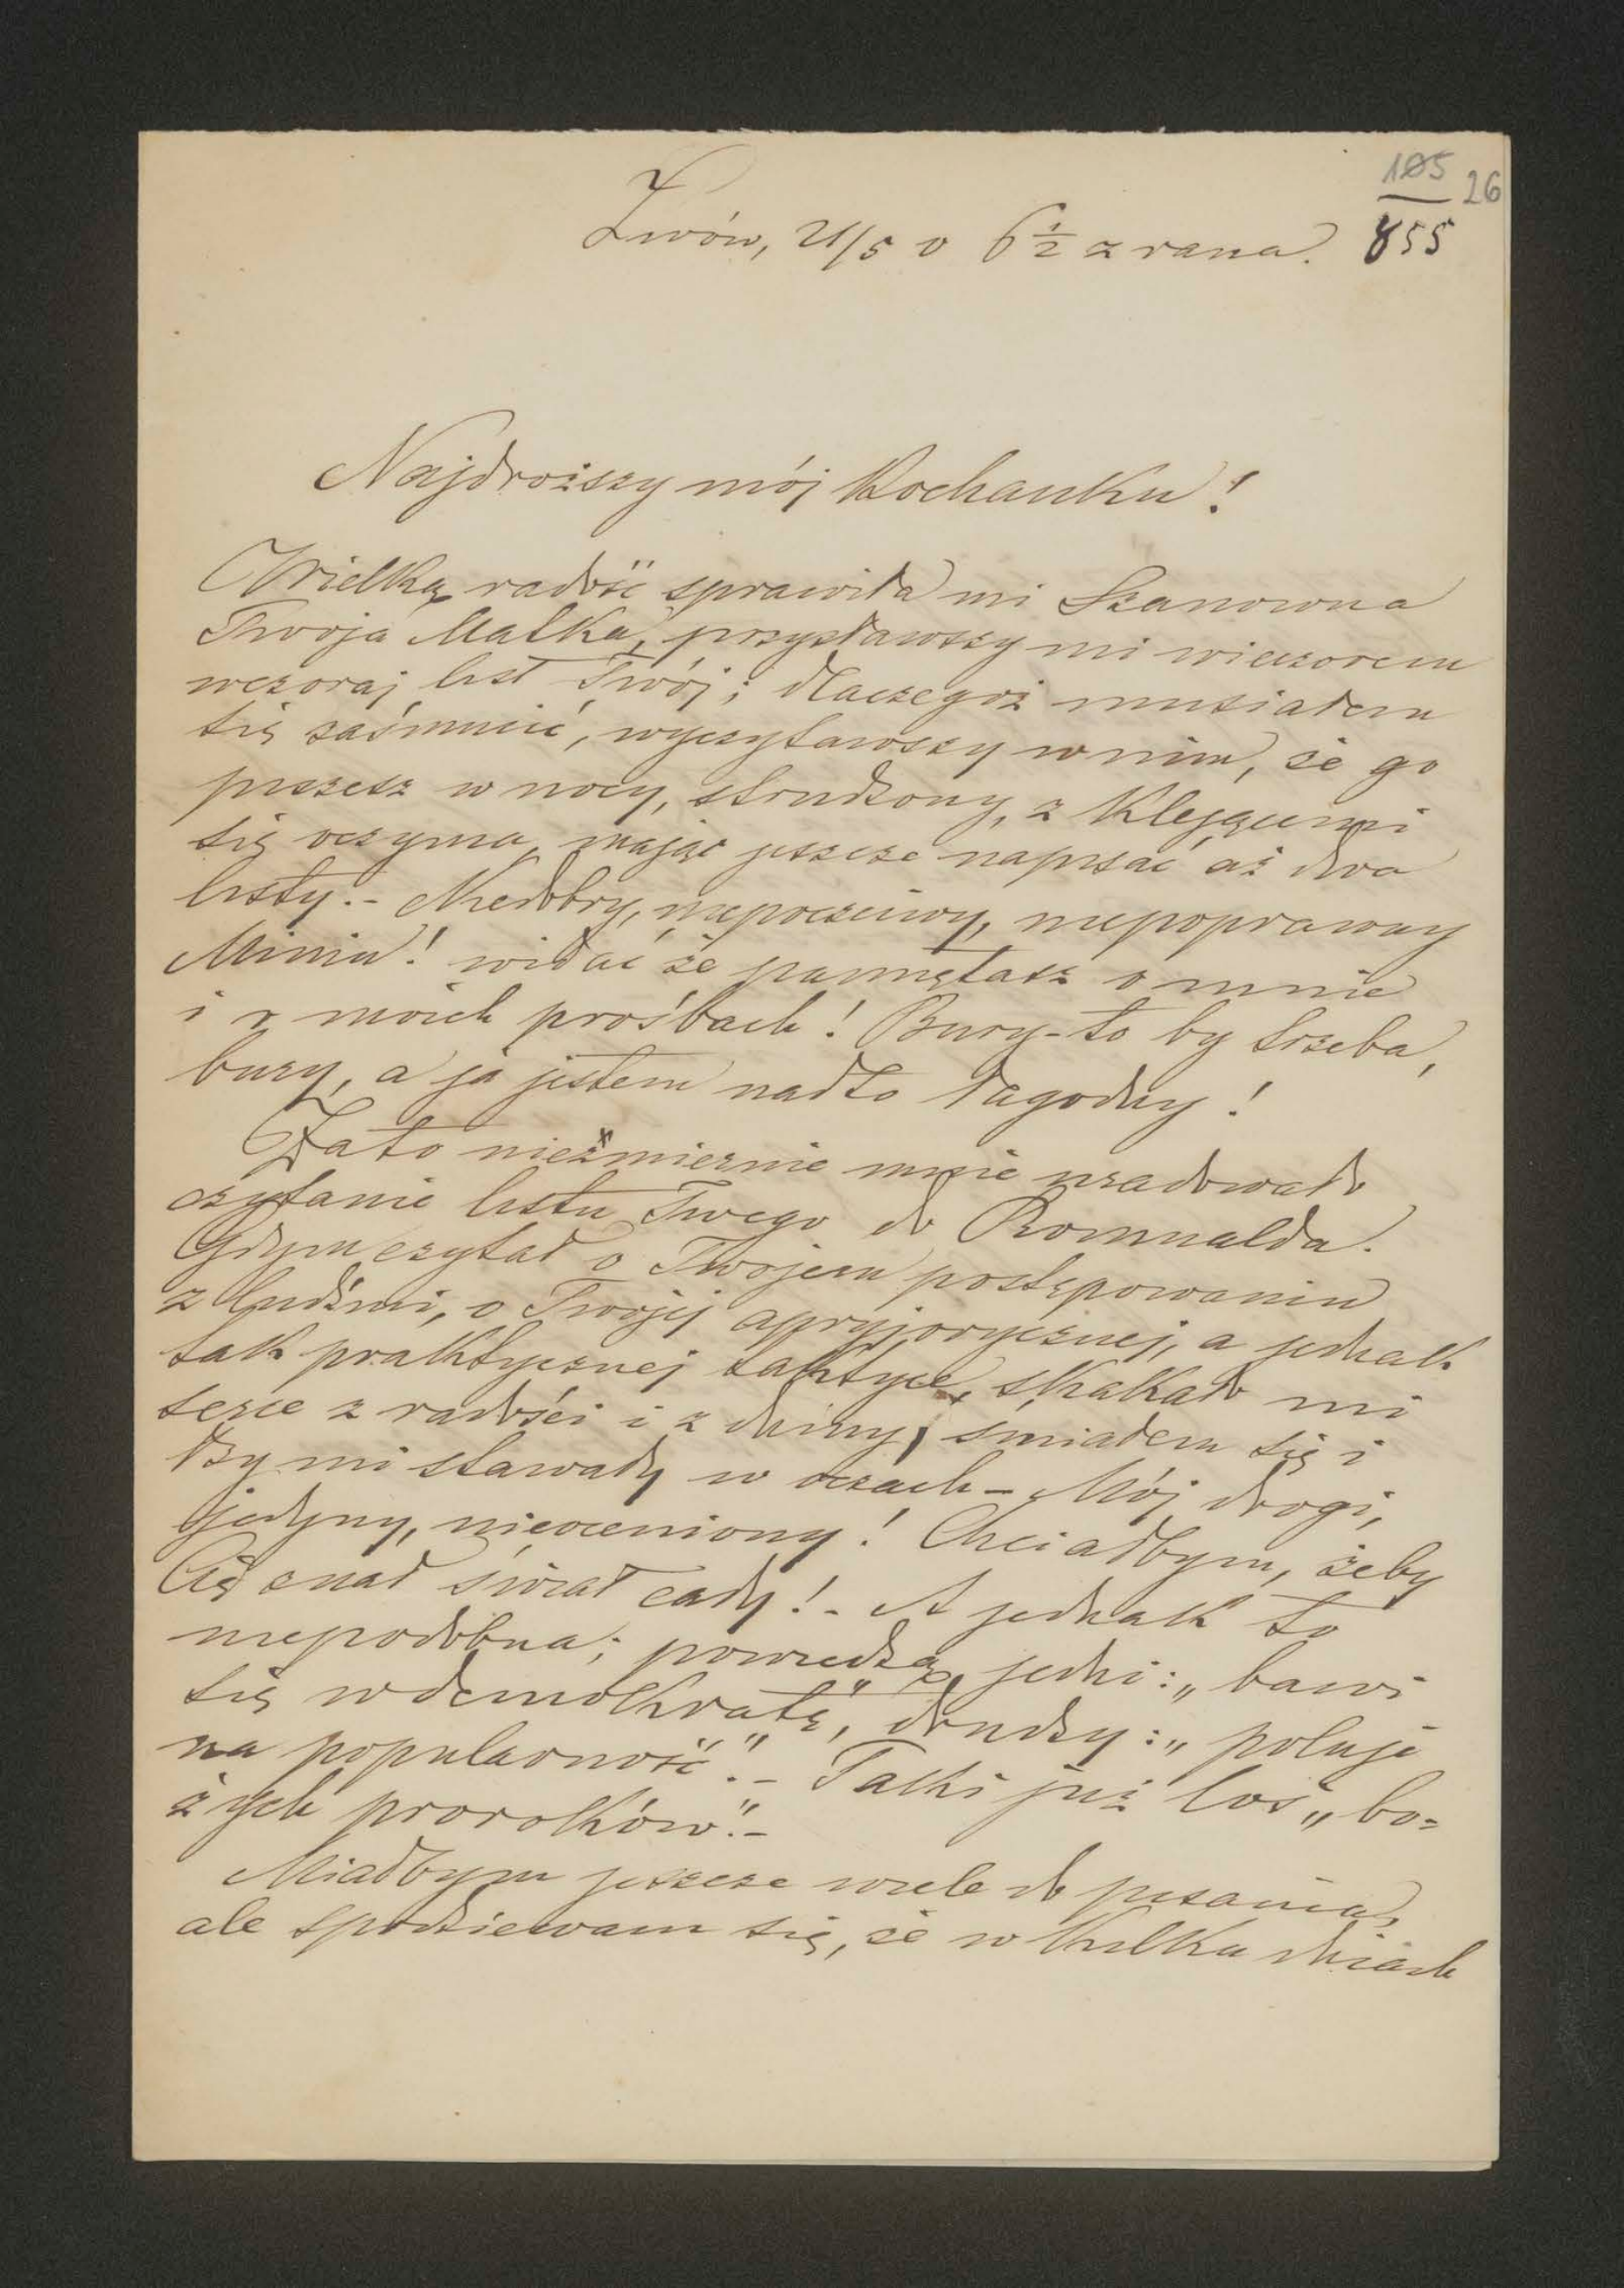 105 26
Lwów, 21/5 o 6 1/2 z rana. 855
Najdroższy mój Kochanku!
Wielką radość sprawiła mi Szanowna
Twoja Matka, przysławszy mi wieczorem
wczoraj list Twój; dlaczegóż musiałem
się zaśmucić, wyczytawszy w nim, że go
piszesz w nocy, strudzony, z klejącemi
się oczyma, mając jeszcze napisać aż dwa
listy. - Niedobry, niepoczciwy, niepoprawny
Miniu! widać że pamiętasz o mnie
i o moich prośbach! Bury-to by trzeba,
bury, a ja jestem nadto łagodny!
Zato niezmiernie mnie uradowało
czytanie listu Twego do Romualda.
Gdym czytał o Twojem postępowaniu
z ludźmi, o Twojej apryjorycznej, a jednak
tak praktycznej taktyce, skakało mi
serce z radości i z dumy, śmiałem się i
łzy mi stawały w oczach - Mój drogi,
jedyny, nieoceniony! Chciałbym, żeby
Cię znał świat cały! - A jednak to
niepodobna; powiedzą jedni: „bawi
się w demokratę", drudzy: „poluje
na popularność". - Taki już los „bo=
żych proroków". -
Miałbym jeszcze wiele do pisania,
ale spodziewam się, że w kilku dniach